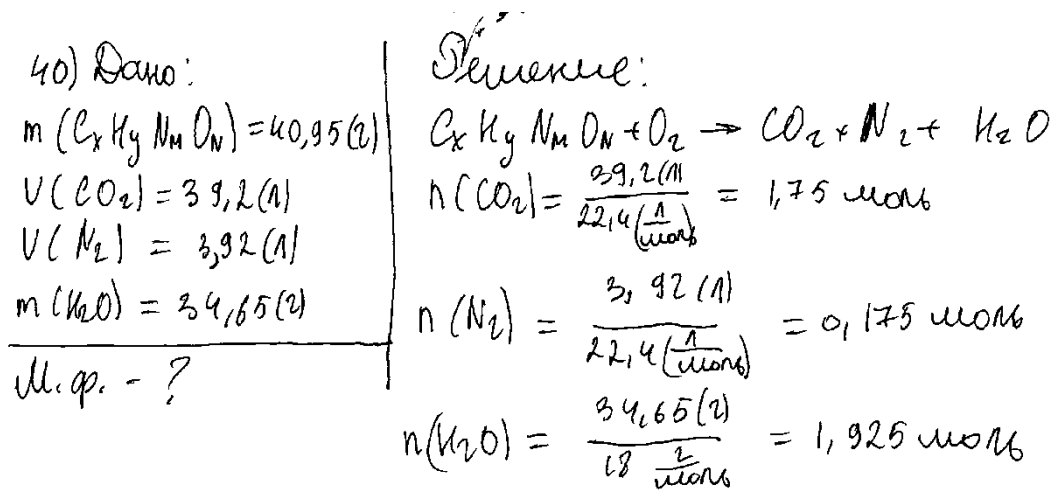 40) Дано:
m (CxHyNMON) = 40,95(г)
V(CO2) = 39,2(л)
V(N2) = 3,92(л)
m(H2O) = 34,65(г)
М.ф. - ?
Решение:
CxHyNMON + O2 → CO2 + N2 + H2O
n(CO2) = 39,2(л) / 22,4(л/моль) = 1,75 моль
n(N2) = 3,92(л) / 22,4(л/моль) = 0,175 моль
n(H2O) = 34,65(г) / 18 г/моль = 1,925 моль